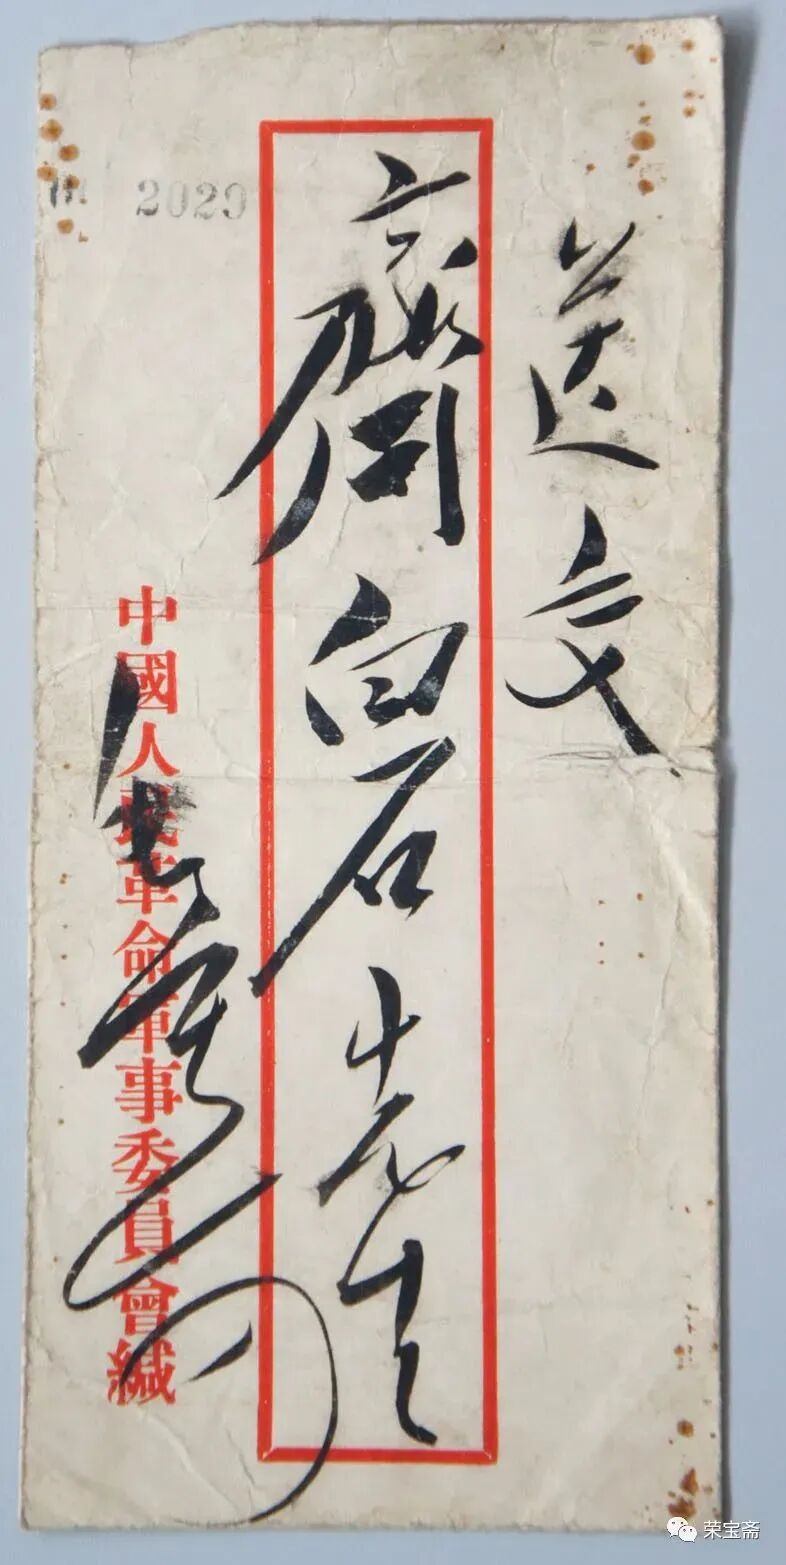 送交
齊白石先生
2029
中國人民革命軍事委員會緘
荣宝斋